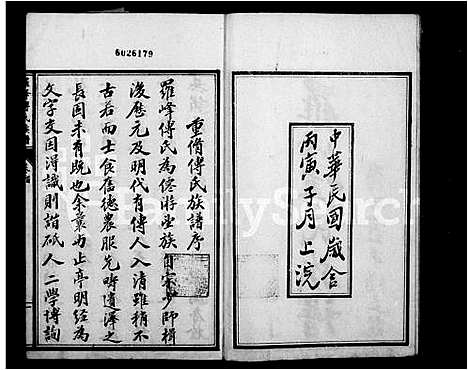 6026179
中華民國歲合
丙寅子月上浣
重脩傅氏族譜序
羅峰傅氏為僊游望族自宋少師楫
後歷元及明代有傳人入清雖稍不
古若而士食舊德農服先疇遺澤之
長固未有既也余曩為止亭明經為
文字交因得識則諧砥人二學博詢
FamilySearch